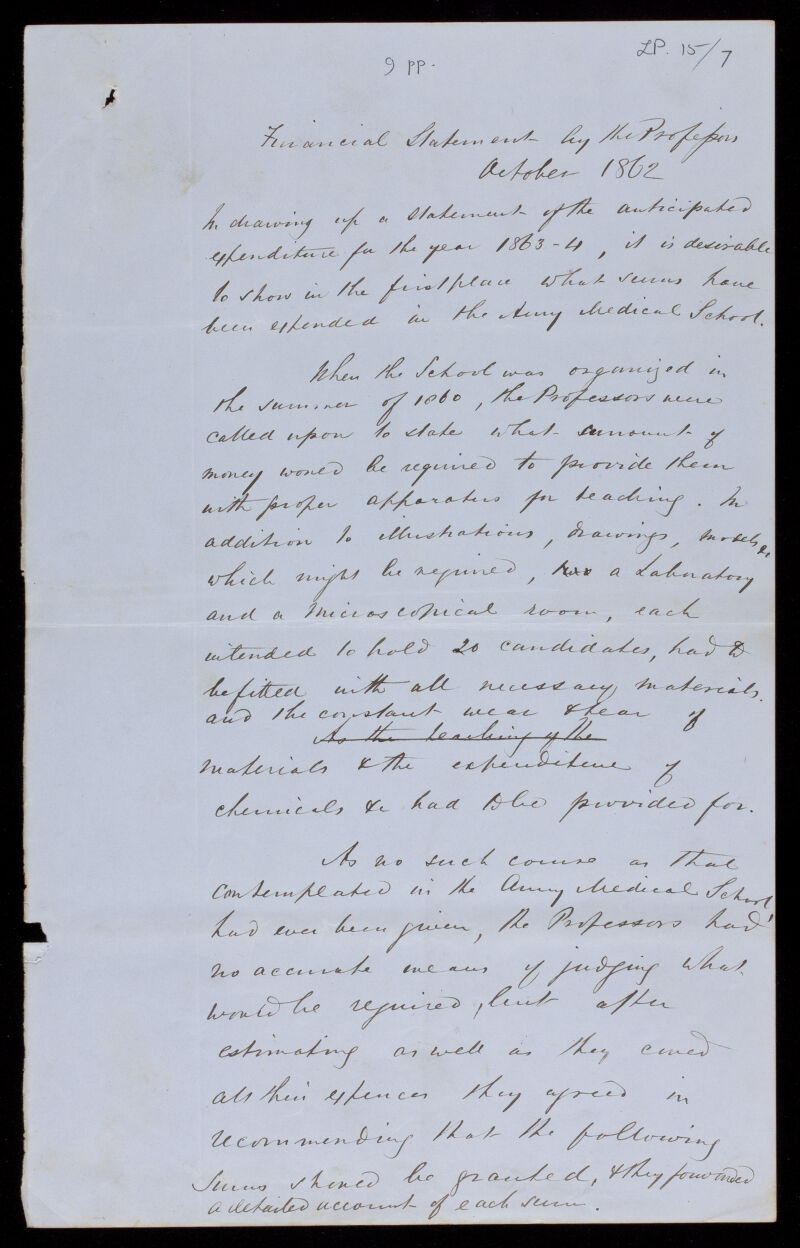 9 pp.
LP. 15/7
Financial Statement by the Professors
October 1862
In drawing up a statement of the anticipated
expenditure for the year 1863-4, it is desirable
to show in the first place what sums have
been expended in the Army Medical School.
When the School was organized in
the summer of 1860, the Professors were
called upon to state what amount of
money would be required to provide them
with proper apparatus for teaching. In
addition to illustrations, drawings, models &c
which might be required, a Laboratory
and a Microscopical room, each
intended to hold 20 candidates, had to
be fitted with all necessary materials.
and the constant wear & tear of
As the teaching of the
materials & the expenditure of
chemicals &c had to be provided for.
As no such course as that
contemplated in the Army Medical School
had ever been given, the Professors had
no accurate means of judging what
would be required, but after
estimating as well as they could
all their expences they agreed in
recommending that the following
Sums should be granted, & they forwarded
a detailed account of each sum.